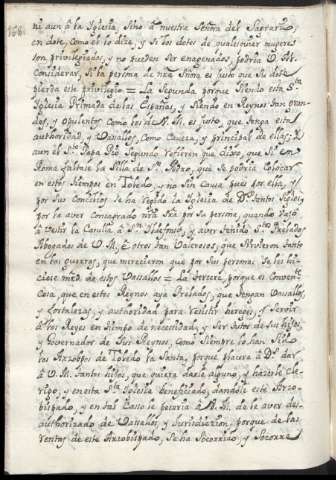 ni aun â la Iglesia, sino â nuestra Señora del Sagrario,
en dote, como el lo dize, y si los dotes de qualesquier mugeres
son privilegiados, y no pueden ser enagenados, podria V. M.
considerar, si la persona de nra Señora es justo que su dote
pierda este privilegio = La Segunda porque siendo esta Sta
Iglesia Primada de las Españas, y estando en Reynos tan gran-
des, y opulentos como los de V. M. es justo, que tenga esta
authoridad, y Vasallos, como Caveza, y principal de ellas; y
aun el Sto Papa Pio Segundo refieren que dixo, que si en
Roma faltase la silla de Sn Pedro, que se podria colocar
en estos tiempos en Toledo, y no sin causa, pues por esta, y
por sus Concilios se ha regido la Iglesia de Ds tantos siglos,
por la aver consagrado nra Sra por su persona, quando bajó
â vestir la Casulla â Sn Ildefonso, y aver tenido Stos Prelados
Abogados de V. M. è otros tan valerosos, que sirvieron tanto
en las guerras, que merecieron que por sus personas se les hi-
ciese mrd. de estos Vasallos = La tercera, porque es convente
cosa, que en estos Reynos aya Prelados, que tengan Vasallos,
y fortalezas, y authoridad para resistir hereges, y servir
â los Reyes en tiempo de necesidad, y ser tutor de sus hijos,
y Governador de sus Reynos, como siempre lo han sido
los Arzobpos de Toledo. La quarta, porque placera â Ds dar
â V. M. tantos hijos, que quiera darle alguno, y hazerle Cle-
rigo, y en esta Sta Iglesia beneficiado, dandole este Arzo-
bispado, y en tal caso le pesaria â V. M. de la aver des-
authorizado de Vasallos, y Jurisdiccion; porque de las
rentas de este Arzobispado, se ha socorrido, y socorre